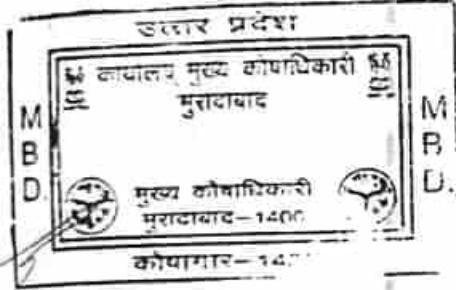 उत्तर प्रदेश
कार्यालय मुख्य कोषाधिकारी
मुरादाबाद
M
B
D.
M
B
D.
मुख्य कोषाधिकारी
मुरादाबाद–1400
कोषागार–